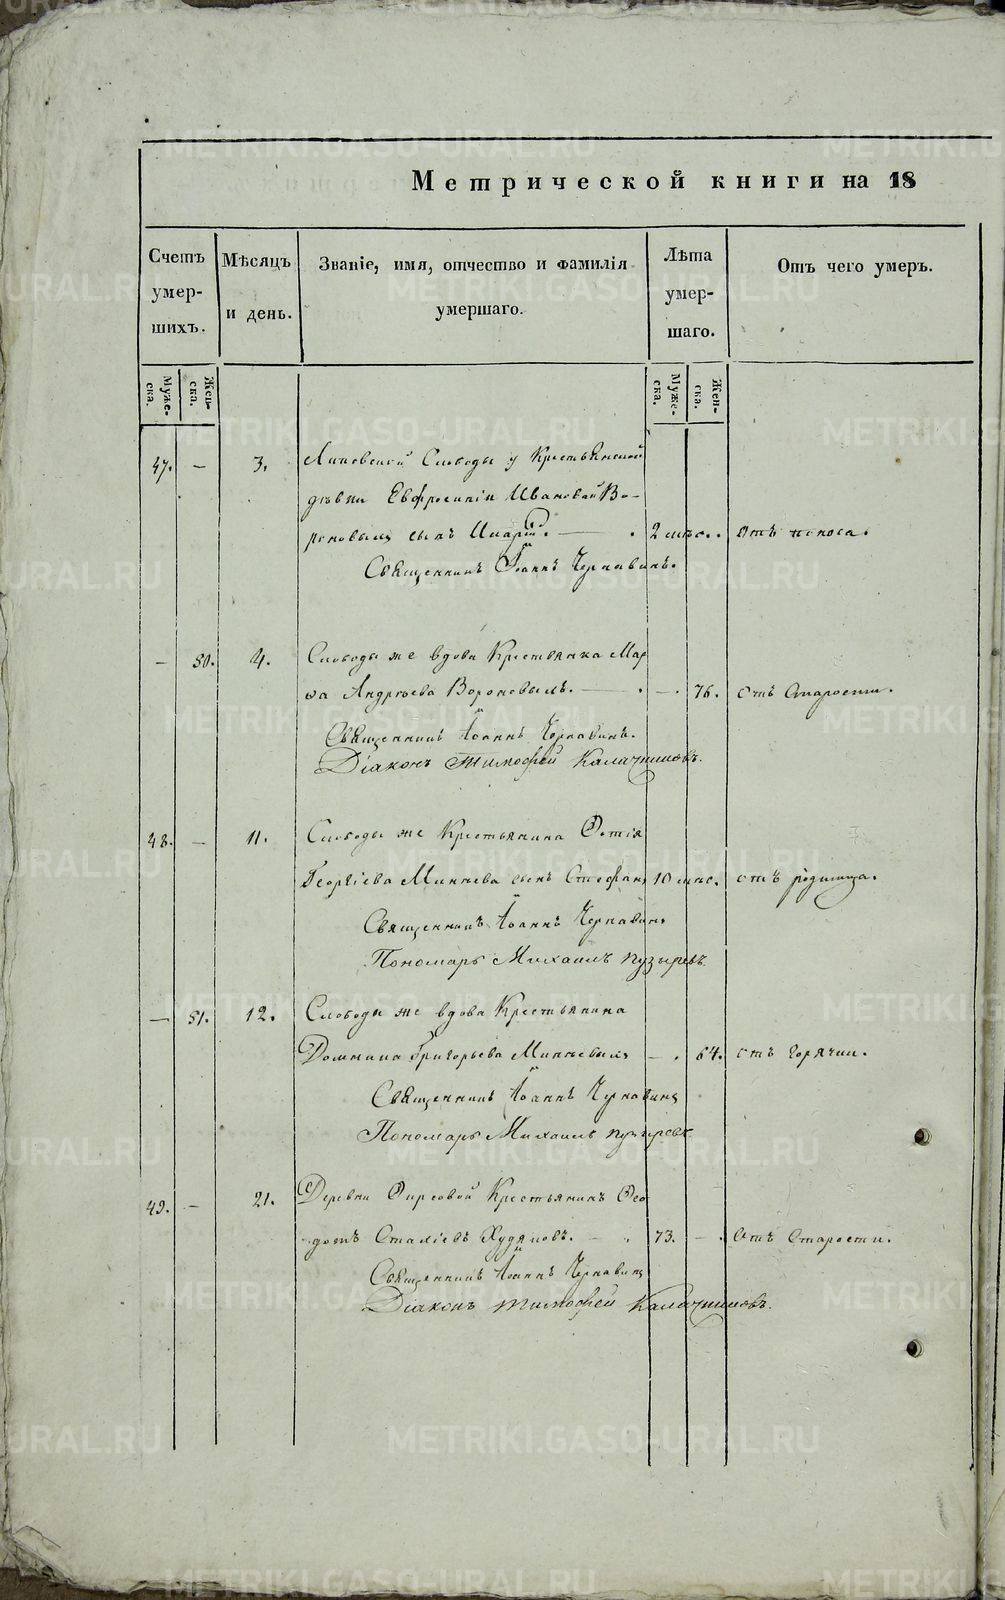 Метрической книги на 18
Счетъ умер-шихъ.
Мѣсяцъ и день.
Званіе, имя, отчество и фамилія умершаго.
Лѣта умер-шаго.
Отъ чего умеръ.
Муже-ска.
Жен-ска.
Муже-ска.
Жен-ска.
47. — 3. Слободы у Крестьянской
дѣвки Евфросиніи Ивановой Во-
роновыхъ сынъ 2 мѣс. Отъ поноса.
Священникъ Іоаннъ Чернавинъ.
— 50. 4. Слободы же вдова Крестьянка Мар
ѳа Андреева Вороновыхъ. — 76. отъ Старости.
Священникъ Іоаннъ Чернавинъ.
Діаконъ Тимофей Калачниковъ.
48. — 11. Слободы же Крестьянина Фотія
Георгіева Минѣева сынъ Стефанъ 10 мѣс. отъ родимца.
Священникъ Іоаннъ Чернавинъ
Пономарь Михаилъ Пузыревъ.
— 51. 12. Слободы же вдова Крестьянина
Домнина Григорьева Минѣевыхъ — 64. отъ горячки.
Священникъ Іоаннъ Чернавинъ
Пономарь Михаилъ Пузыревъ
49. — 21. Деревни Фирсовой Крестьянинъ Ѳео
дотъ Худяковъ. 73. — Отъ Старости.
Священникъ Іоаннъ Чернавинъ
Діаконъ Тимофей Калачниковъ.
METRIKI.GASO-URAL.RU